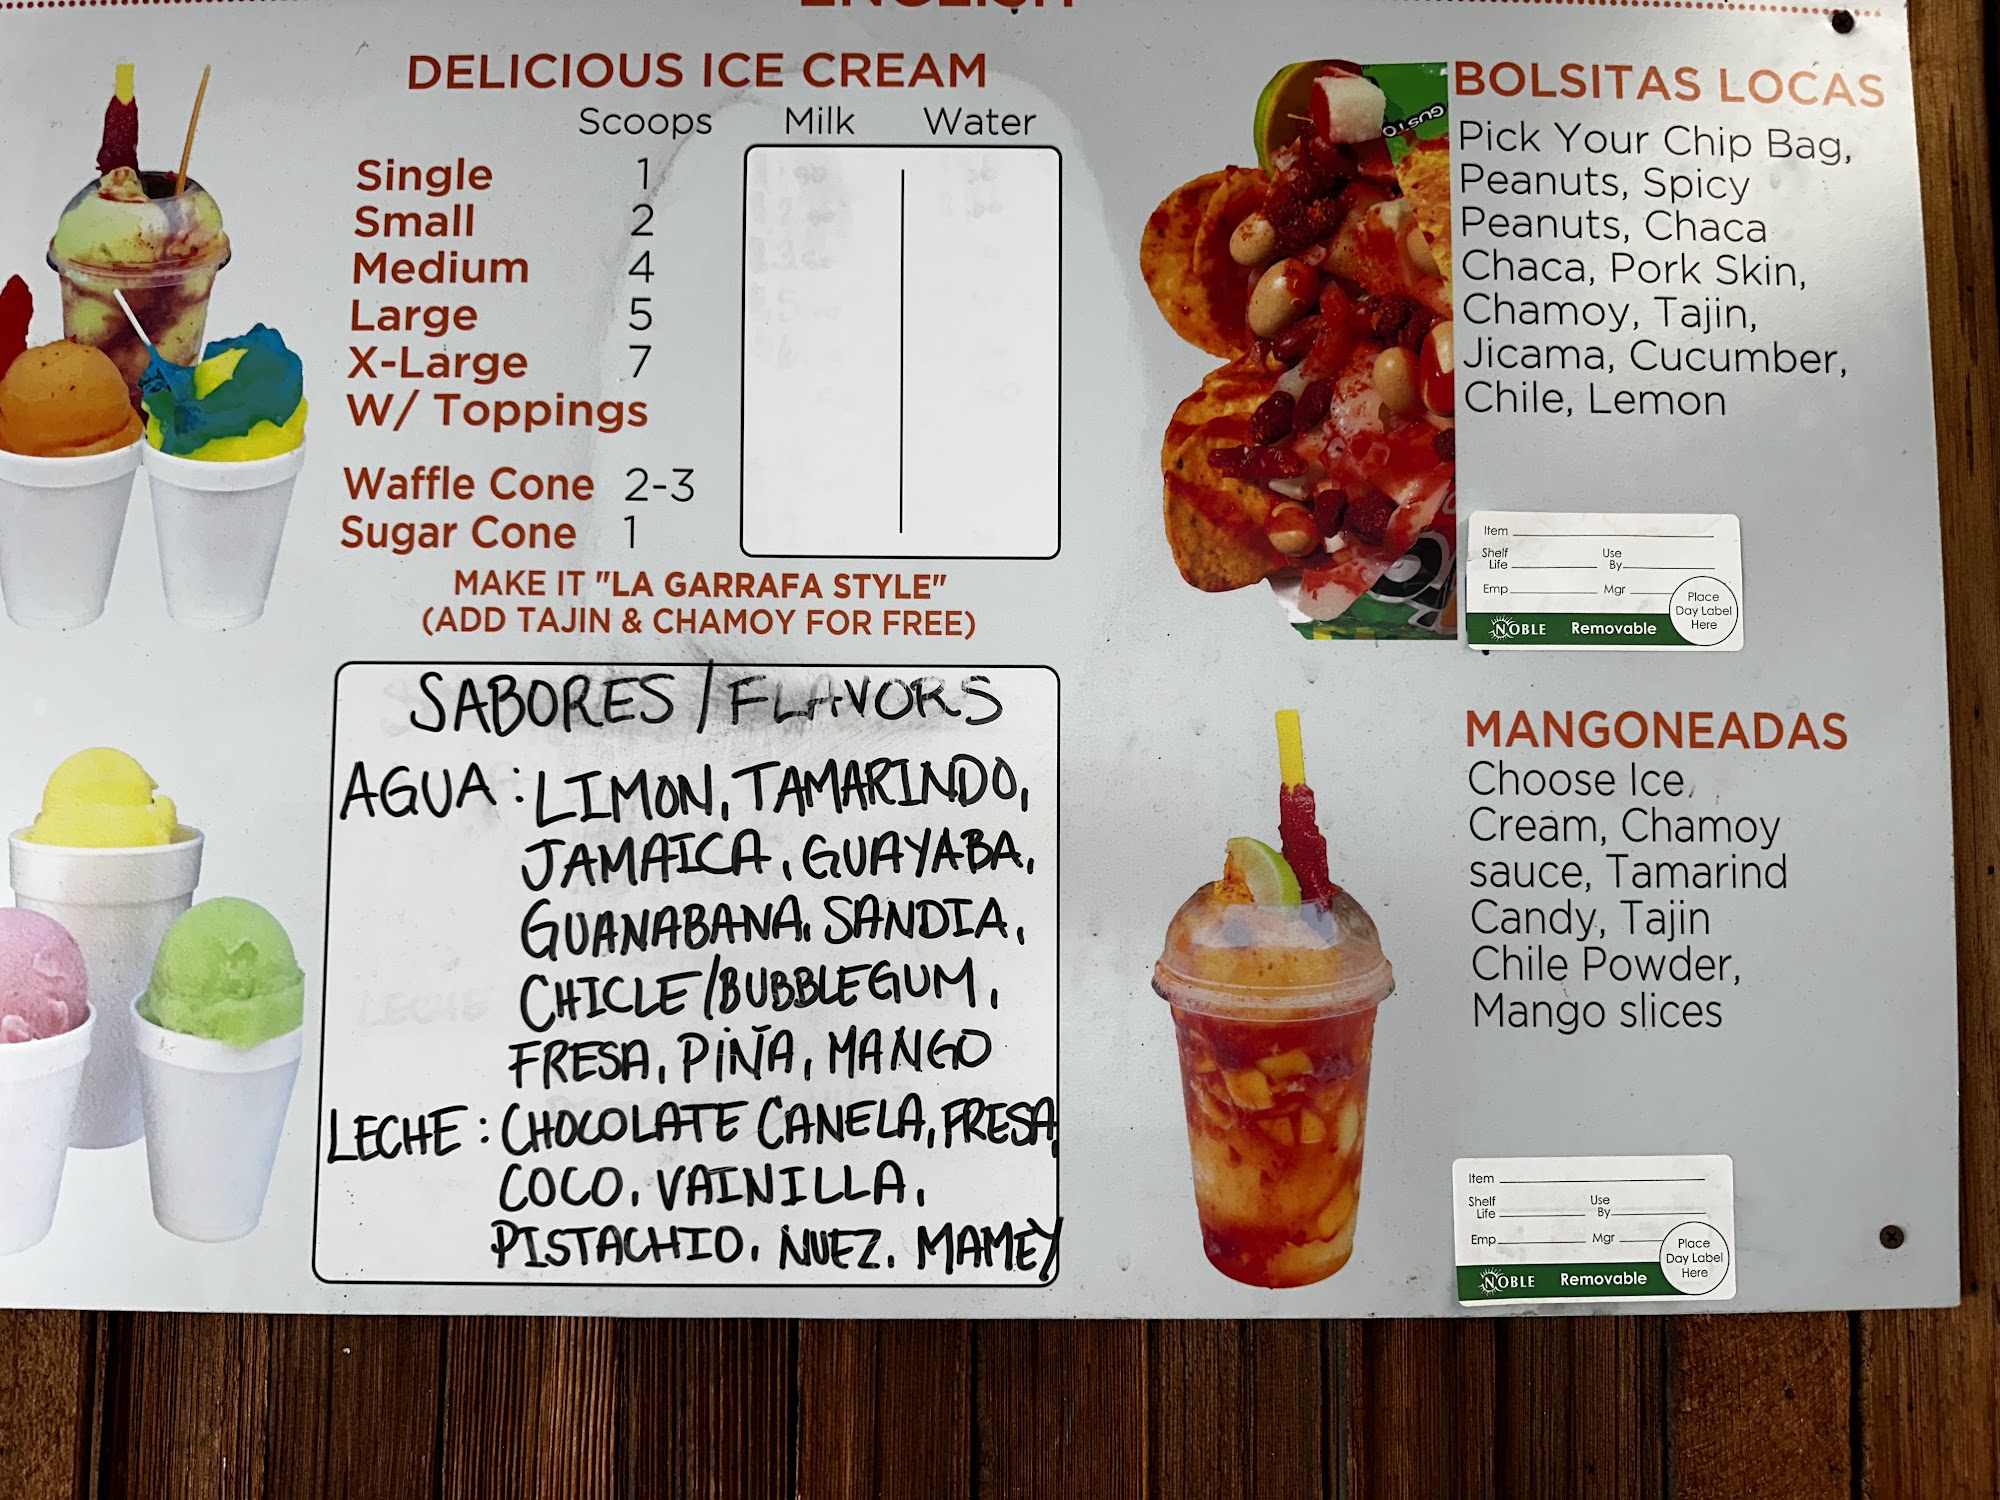 DELICIOUS ICE CREAM
Scoops Milk Water
Single 1
Small 2
Medium 4
Large 5
X-Large 7
W/ Toppings
Waffle Cone 2-3
Sugar Cone 1
MAKE IT "LA GARRAFA STYLE"
(ADD TAJIN & CHAMOY FOR FREE)
SABORES/FLAVORS
AGUA: LIMON, TAMARINDO,
JAMAICA, GUAYABA,
GUANABANA, SANDIA,
CHICLE/BUBBLEGUM,
FRESA, PIÑA, MANGO
LECHE: CHOCOLATE CANELA, FRESA,
COCO, VAINILLA,
PISTACHIO, NUEZ, MAMEY
BOLSITAS LOCAS
Pick Your Chip Bag,
Peanuts, Spicy
Peanuts, Chaca
Chaca, Pork Skin,
Chamoy, Tajin,
Jicama, Cucumber,
Chile, Lemon
GUSTO
Item
Shelf Life Use By
Emp Mgr
Place
Day Label
Here
NOBLE Removable
MANGONEADAS
Choose Ice
Cream, Chamoy
sauce, Tamarind
Candy, Tajin
Chile Powder,
Mango slices
Item
Shelf Life Use By
Emp Mgr
Place
Day Label
Here
NOBLE Removable